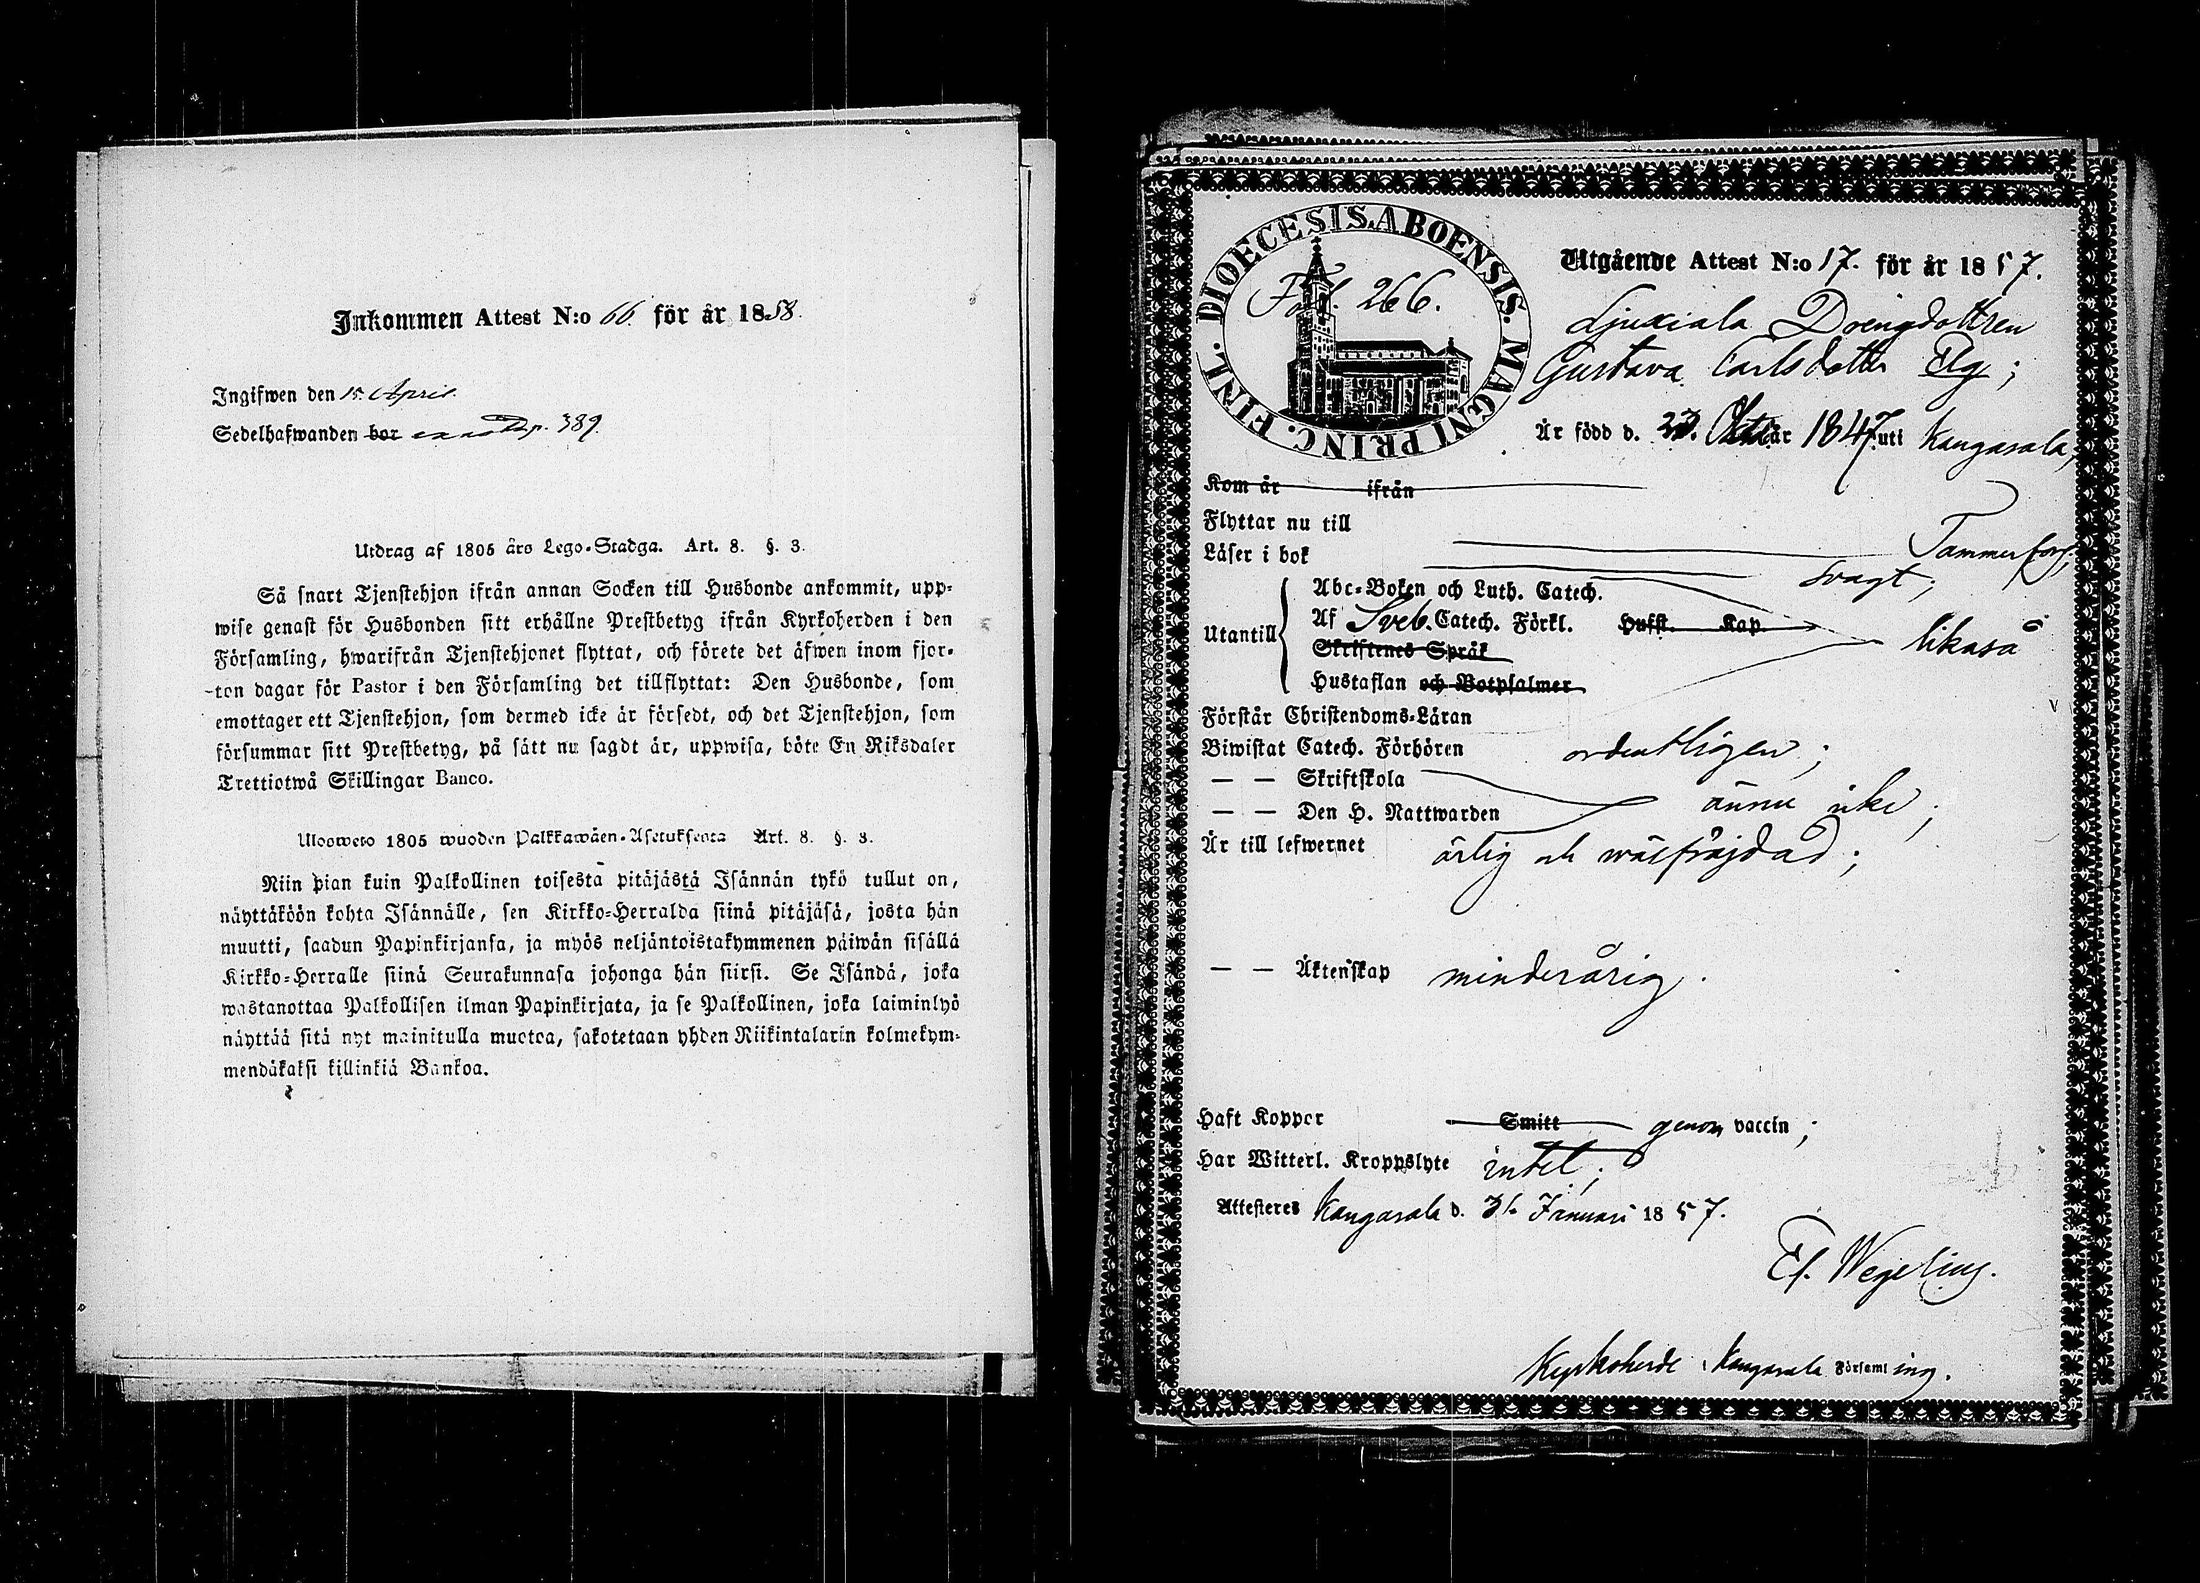 Inkommen Attest N:o 66. för år 1858.
Ingifwen den 15 April.
Sedelhafwanden bor p. 389.
Utdrag af 1805 års Lego-Stadga. Art. 8. §. 3.
Så snart Tjenstehjon ifrån annan Socken till Husbonde ankommit, upp-
wise genast för Husbonden sitt erhållne Prestbetyg ifrån Kyrkoherden i den
Församling, hwarifrån Tjenstehjonet flyttat, och förete det äfwen inom fjor-
ton dagar för Pastor i den Församling det tillflyttat: Den Husbonde, som
emottager ett Tjenstehjon, som dermed icke är försedt, och det Tjenstehjon, som
försummar sitt Prestbetyg, på sätt nu sagdt är, uppwisa, böte En Riksdaler
Trettiotwå Skillingar Banco.
Ulosweto 1805 wuoden Palkkawäen-Asetuksesta Art. 8. §. 3.
Niin pian kuin Palkollinen toisesta pitäjästä Isännän tykö tullut on,
näyttäköön kohta Isännälle, sen Kirkko-Herralda siinä pitäjäsä, josta hän
muutti, saadun Papinkirjansa, ja myös neljäntoistakymmenen päiwän sisällä
Kirkko-Herralle siinä Seurakunnasa johonga hän siirsi. Se Isändä, joka
wastanottaa Palkollisen ilman Papinkirjata, ja se Palkollinen, joka laiminlyö
näyttää sitä nyt mainitulla muotoa, sakotetaan yhden Riikintalarin kolmekym-
mendäkaksi killinkiä Bankoa.
DIOECESIS.ABOENSIS. MAGNI PRINC. FINL.
Fol. 266.
Utgående Attest N:o 17. för år 1857.
Ljuxiala Drengdottren
Gustava Carlsdotter Elg;
Är född d. 23. Oktbr år 1847. uti Kangasala,
Kom år ifrån
Flyttar nu till Tammerfors;
Läser i bok svagt;
Utantill
Abc-Boken och Luth. Catech.
Af Sveb. Catech. Förkl. Husst. Kap. likaså
Skriftenes Språk
Hustaflan och Botpsalmer
Förstår Christendoms-Läran
Biwistat Catech. Förhören ordentligen;
— — Skriftskola
— — Den H. Nattwarden ännu icke;
Är till lefwernet ärlig och wälfräjdad;
— — Äktenskap minderårig.
Haft Koppor Smitt genom vaccin;
Har Witterl. Kroppslyte intet;
Attesteres Kangasala d. 31 Januari 1857.
Ef. Wegelius.
Kyrkoherde i Kangasala Församling.